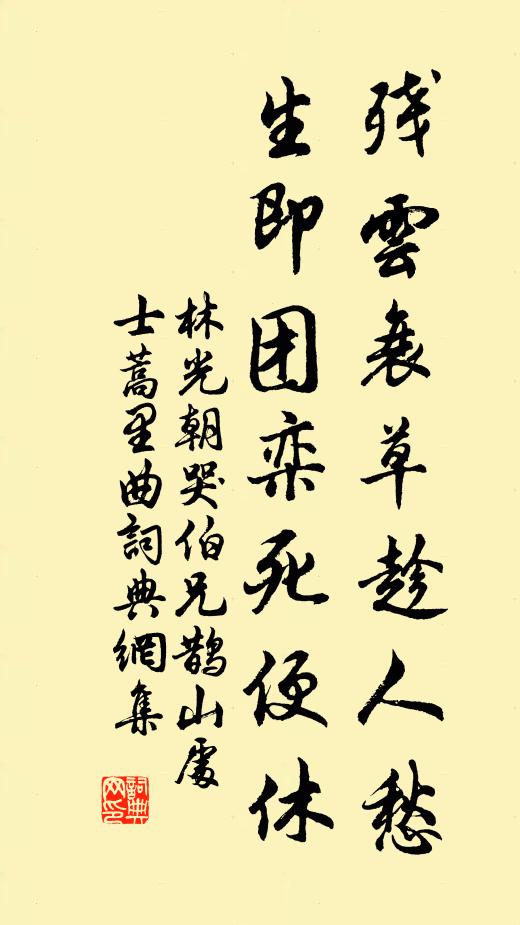 残雲衰草趁人愁
生即团栾死便休
林光朝哭伯兄鹊山處
士蒿里曲詞典網集
詞典
网印